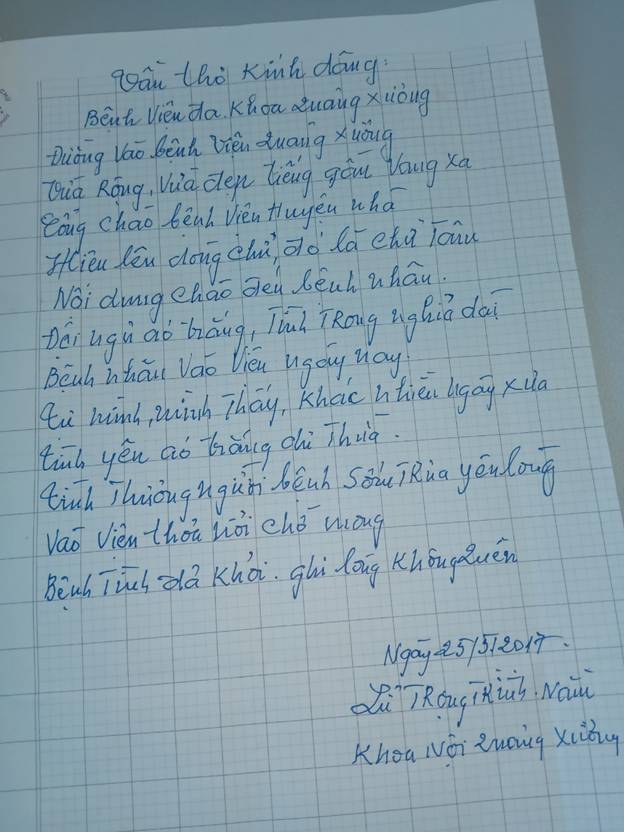 Vần thơ Kính dâng:
Bệnh Viện đa Khoa Quảng Xương
Đường Vào bệnh Viện Quảng Xương
Vừa Rộng, Vừa đẹp tiếng gần Vang xa
Cổng chào bệnh Viện Huyện nhà
Hiện lên dòng chữ, đó là chữ Tâm
Nội dung chào đến bệnh nhân.
Đội ngũ áo trắng, Tình Trọng nghĩa dài
Bệnh nhân Vào Viện ngày nay.
Tự mình, mình Thấy, Khác nhiều ngày xưa
Tình yên áo trắng chi Thừa.
Tình Thương người bệnh Sớm Trưa yên lòng
Vào Viện thoả nỗi chờ mong
Bệnh Tình đã Khỏi. ghi lòng Không Quên
Ngày 25/5/2017.
Lê Trọng Trinh. Nam
Khoa Nội Quảng Xương